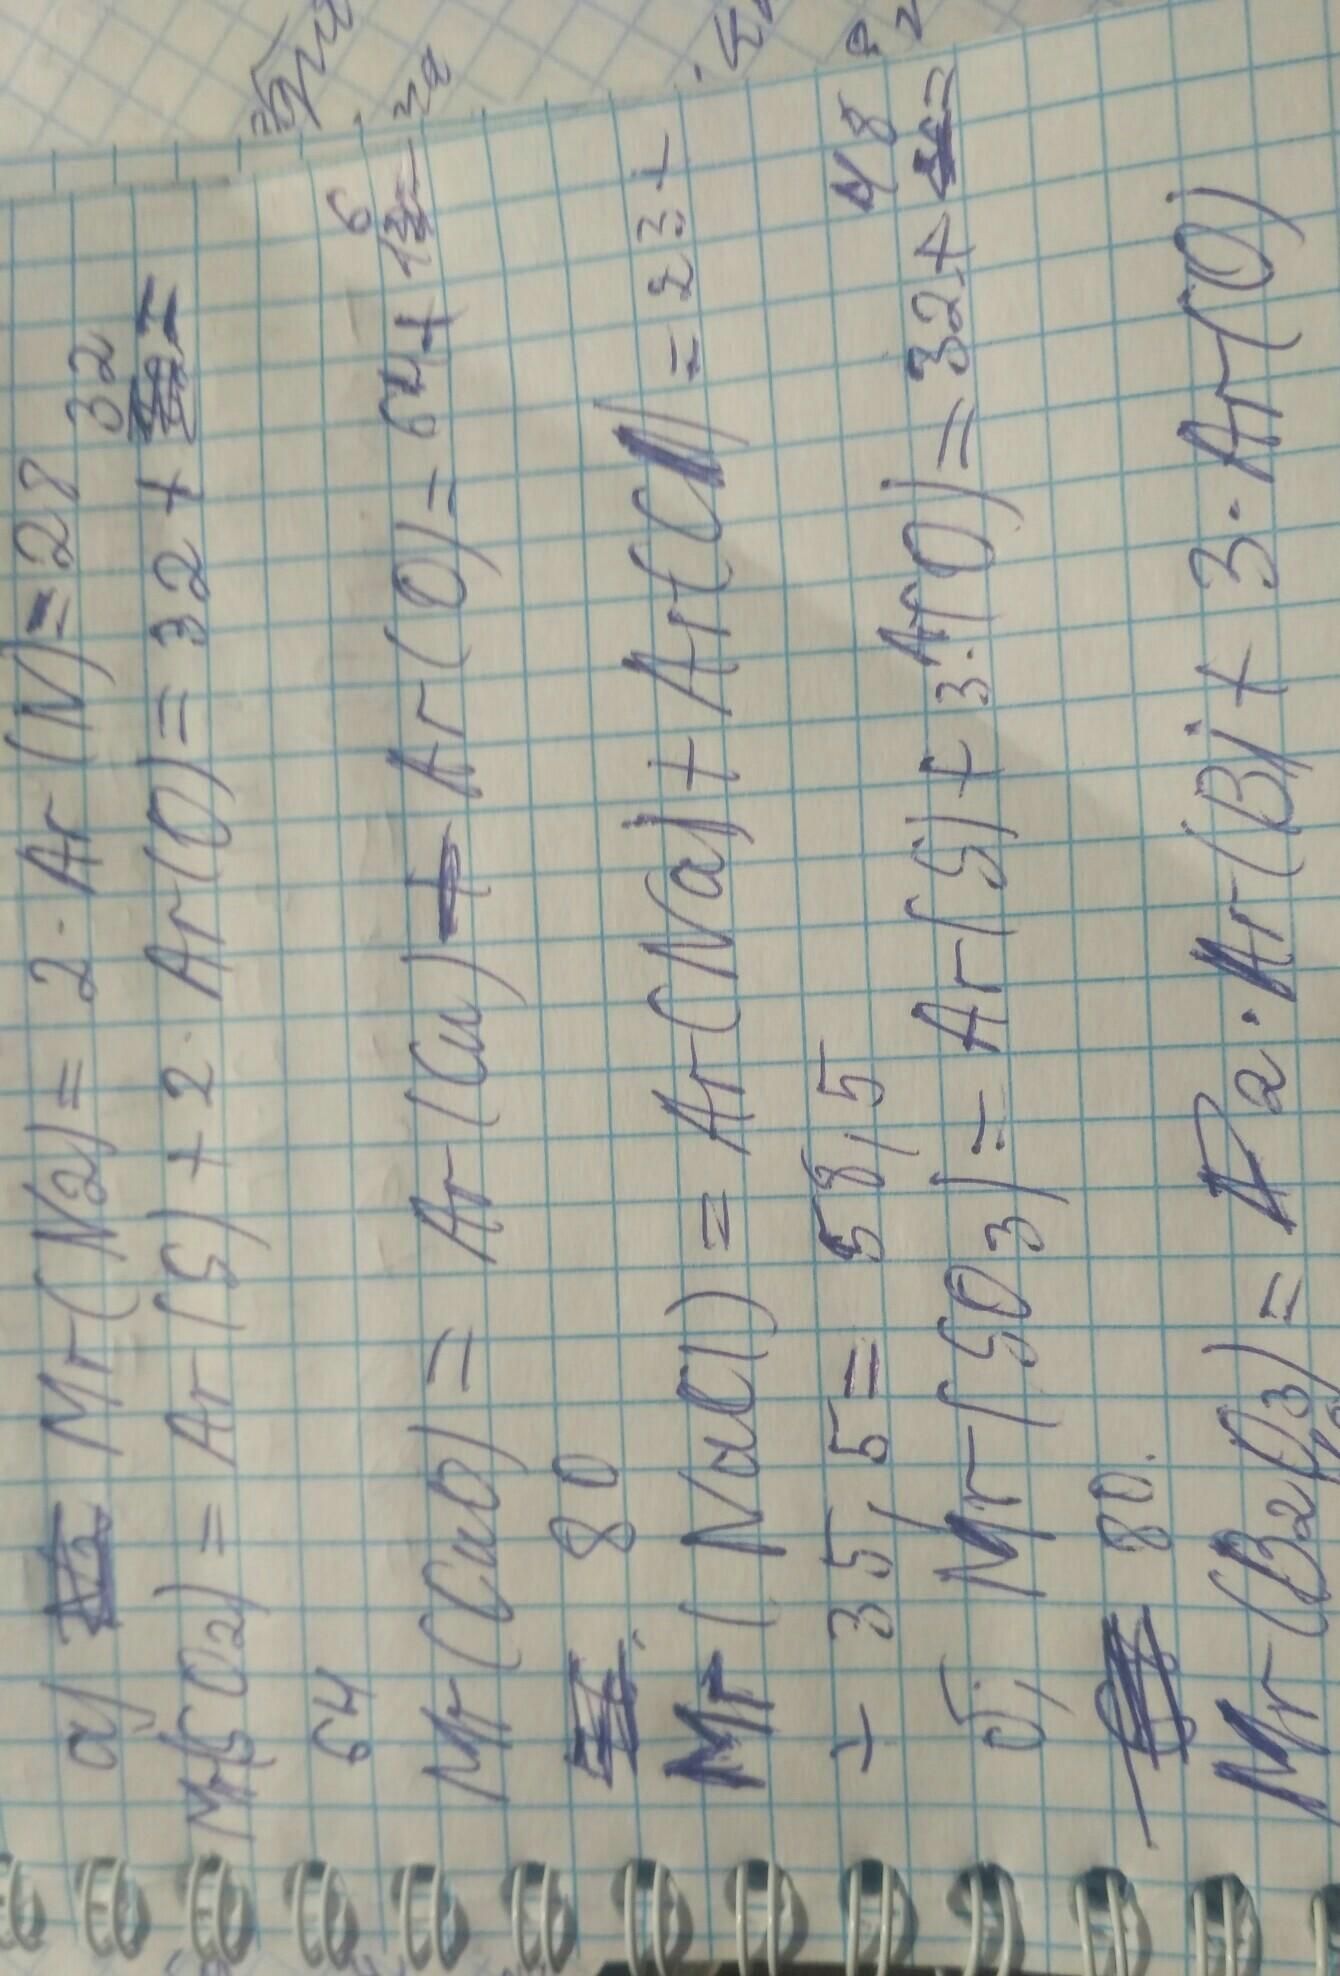 а) Mr(N2) = 2 · Ar(N) = 28
Mr(SO2) = Ar(S) + 2 · Ar(O) = 32 + 32 =
64
Mr(CuO) = Ar(Cu) + Ar(O) = 64 + 16 =
80
Mr(NaCl) = Ar(Na) + Ar(Cl) = 23 +
+ 35,5 = 58,5
б) Mr(SO3) = Ar(S) + 3 · Ar(O) = 32 + 48 =
80.
Mr(B2O3) = 2 · Ar(B) + 3 · Ar(O)